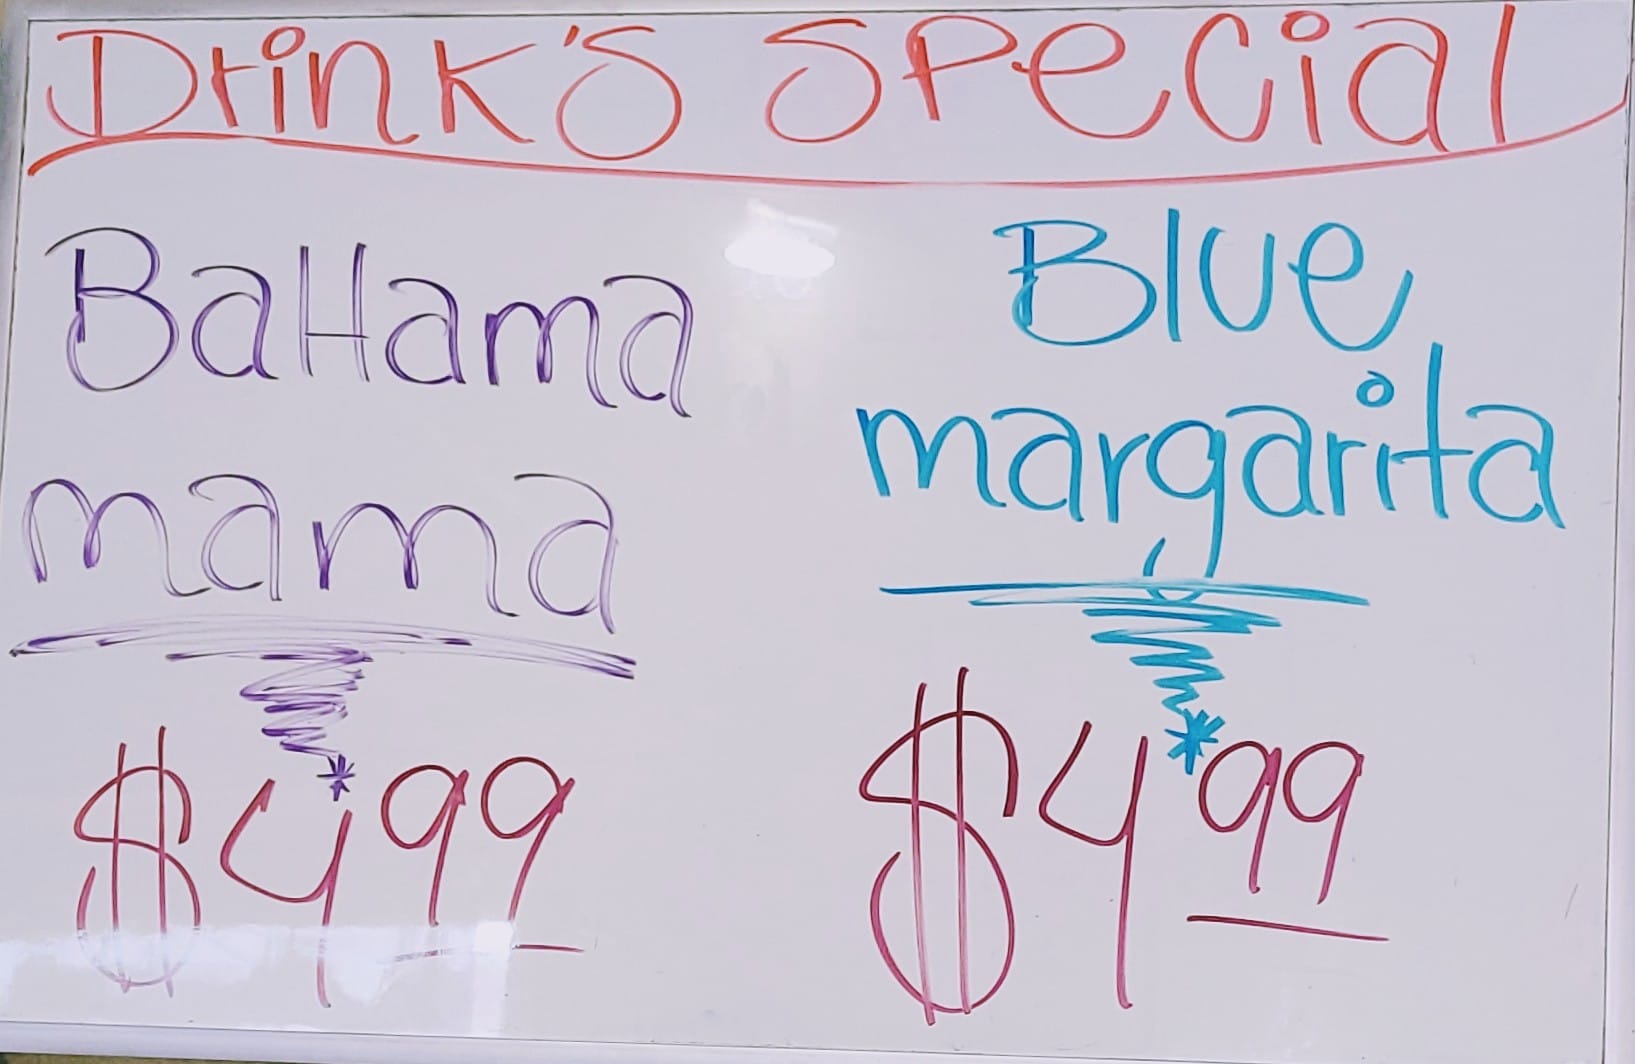 Drink's Special
BaHama
mama
$4.99
Blue
margarita
$4.99